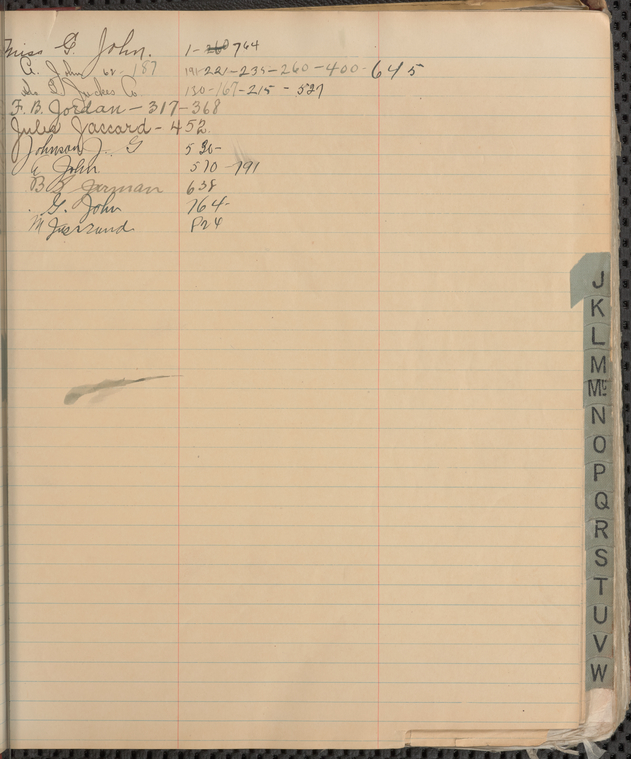 Miss G. John. 1- 260 764
G. John 62-187 191-221-235-260-400-645
Juckes Co. 130-167-215-527
F. B. Jordan-317-368
Julia Jaccard-452
Johnson J. G 530-
G John 570-791
B Jarman 638
G. John 764-
M 824
J
K
L
M
Mc
N
O
P
Q
R
S
T
U
V
W